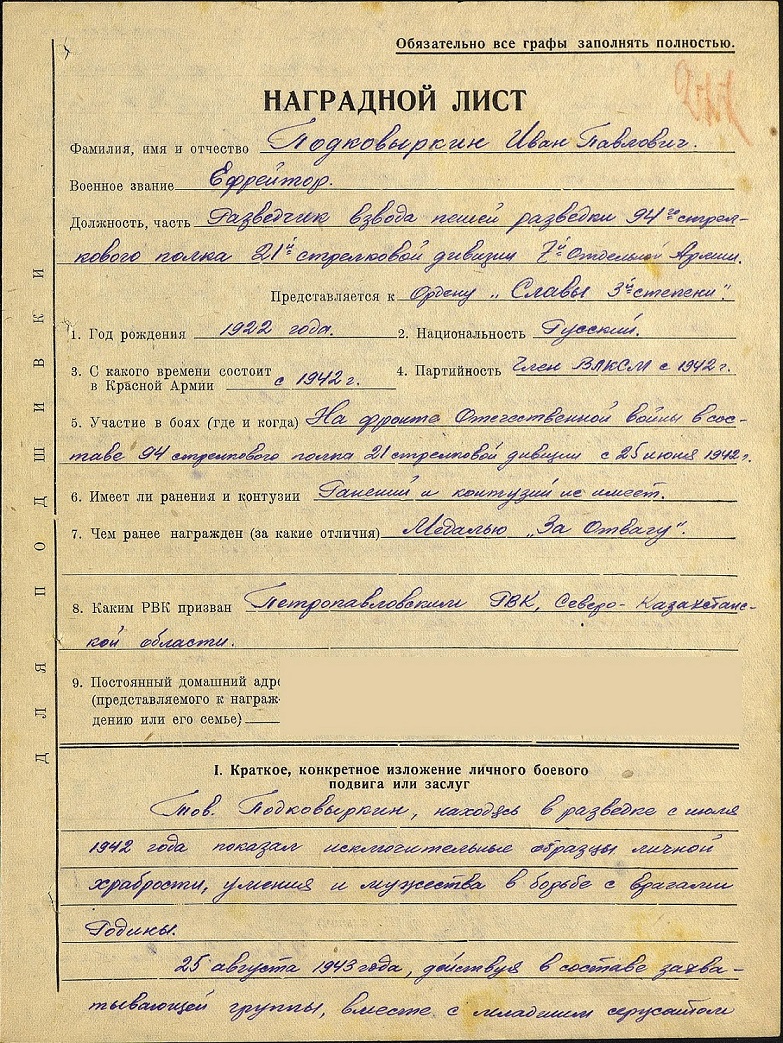 Обязательно все графы заполнять полностью.
НАГРАДНОЙ ЛИСТ
Фамилия, имя и отчество Подковыркин Иван Павлович.
Военное звание Ефрейтор.
Должность, часть Разведчик взвода пешей разведки 94го стрел-
кового полка 21й стрелковой дивизии 7й Отдельной Армии.
Представляется к Ордену „Славы 3й степени".
1. Год рождения 1922 года. 2. Национальность Русский.
3. С какого времени состоит в Красной Армии с 1942 г. 4. Партийность Член ВЛКСМ с 1942 г.
5. Участие в боях (где и когда) На фронте Отечественной войны в сос-
таве 94 стрелкового полка 21 стрелковой дивизии с 25 июня 1942 г.
6. Имеет ли ранения и контузии Ранений и контузий не имеет.
7. Чем ранее награжден (за какие отличия) Медалью „За Отвагу".
8. Каким РВК призван Петропавловским РВК, Северо-Казахстанс-
кой области.
9. Постоянный домашний адре
(представляемого к награж-
дению или его семье)
I. Краткое, конкретное изложение личного боевого
подвига или заслуг
Тов. Подковыркин, находясь в разведке с июля
1942 года показал исключительные образцы личной
храбрости, умения и мужества в борьбе с врагами
Родины.
25 августа 1943 года, действуя в составе захва-
тывающей группы, вместе с младшим сержантом
ДЛЯ ПОДШИВКИ